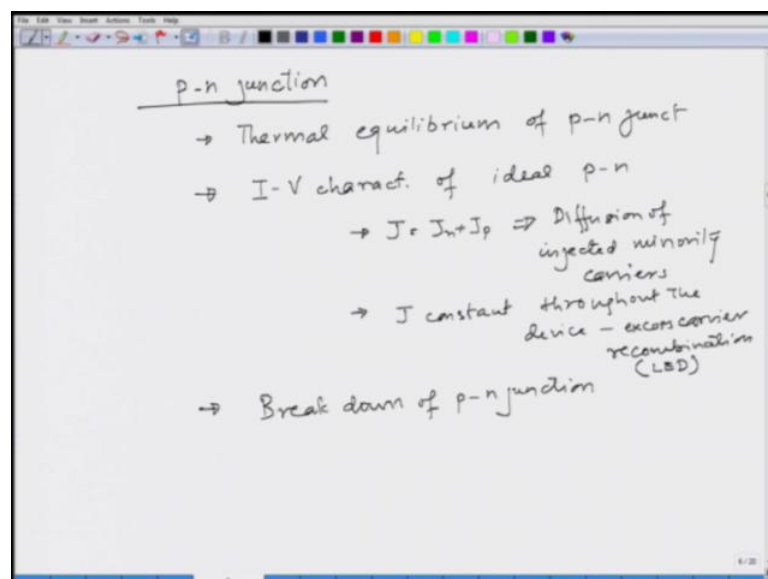 File Edit View Insert Actions Tools Help
p-n junction
→ Thermal equilibrium of p-n junct
→ I-V charact. of ideal p-n
→ J = Jn + Jp ⇒ Diffusion of
injected minority
carriers
→ J constant throughout the
device - excess carrier
recombination
(LED)
→ Break down of p-n junction
6/20